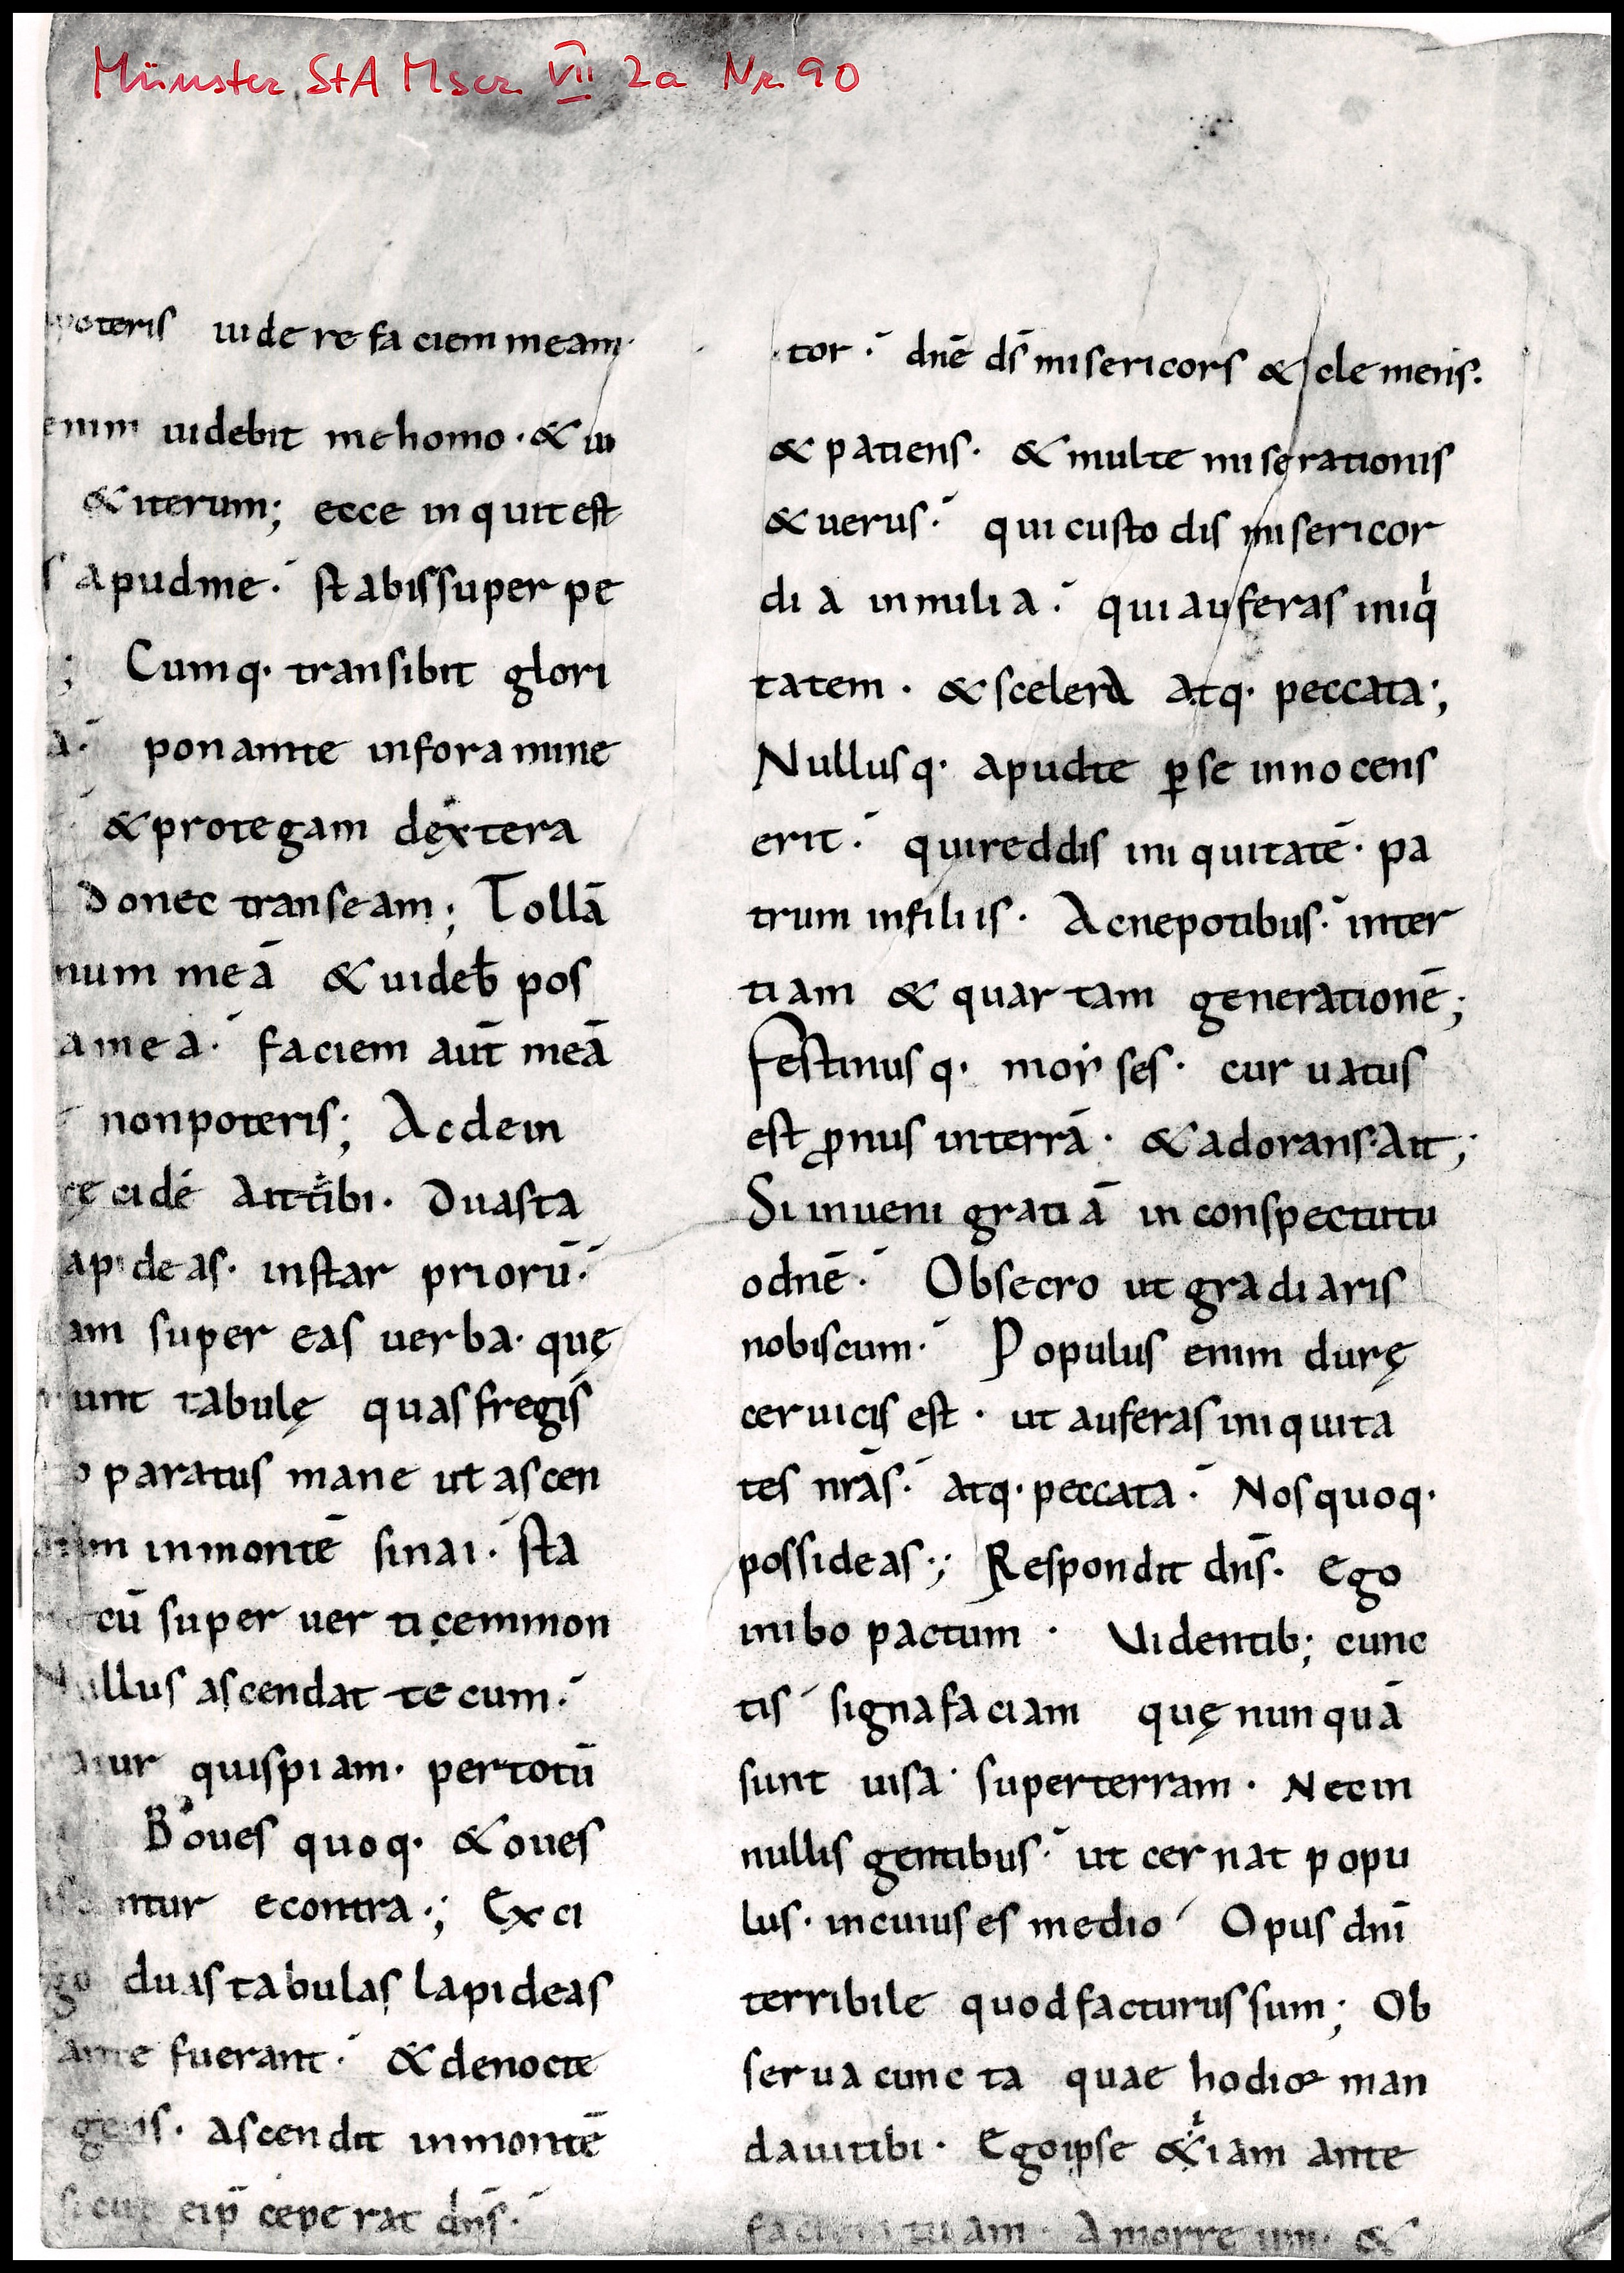 Münster StA Mscr. VII 2a Nr. 90
poteris uidere faciem meam·
enim uidebit me homo · & ui
& iterum; ecce inquit est
s apud me · stabis super pe
; Cumq· transibit glori
a · ponam te in foramine
& protegam dextera
donec transeam; Tollā
num meā & uideb̄ pos
a mea · faciem aut̄ meā
non poteris; Ac dein
cidé ait tibi · Duas ta
apideas · instar priorū ·
am super eas uerba · quę
unt tabulę quas fregis
paratus mane ut ascen
im in montē sinai · sta
cū super uerticem mon
Nullus ascendat tecum ·
atur quispiam · per totū
Boues quoq· & oues
ntur econtra ·; Exci
go duas tabulas lapideas
ante fuerant · & de nocte
gens · ascendit in montē
sicut ei p̄ceperat dn̄s ·
tor · dn̄e ds̄ misericors & clemens ·
& patiens · & multe miserationis
& uerus · qui custodis misericor
dia in milia · qui auferas iniq
tatem · & scelera atq· peccata ;
Nullusq· apud te ꝑ se innocens
erit · qui reddis iniquitatē · pa
trum in filiis · Ac nepotibus · in ter
tiam & quartam generationē ;
festinusq· moyses · curuatus
est ꝓnus in terrā · & adorans · Ait ;
Si inueni gratiā in conspectu tu
o dn̄e · Obsecro ut gradiaris
nobiscum · Populus enim durę
ceruicis est · ut auferas iniquita
tes nr̄as · atq· peccata · Nos quoq·
possideas ·; Respondit dn̄s · Ego
inibo pactum · Uidentib; cunc
tis signa faciam quę nunquā
sunt uisa · super terram · Nec in
nullis gentibus · ut cernat popu
lus · in cuius es medio Opus dn̄i
terribile quod facturus sum ; Ob
serua cuncta quae hodie man
daui tibi · Ego ipse &iam ante
faciem tuam · Amorreum · &